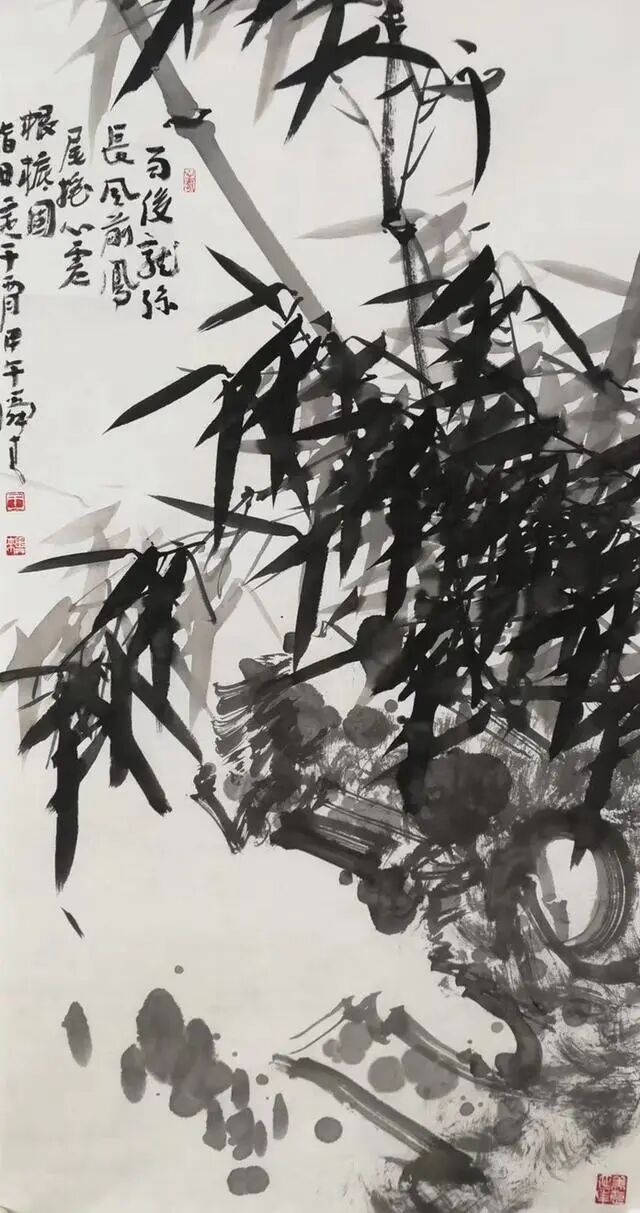 雨後龍孫
長風前鳳
尾搖心虛
根柢固
指日定干霄甲午